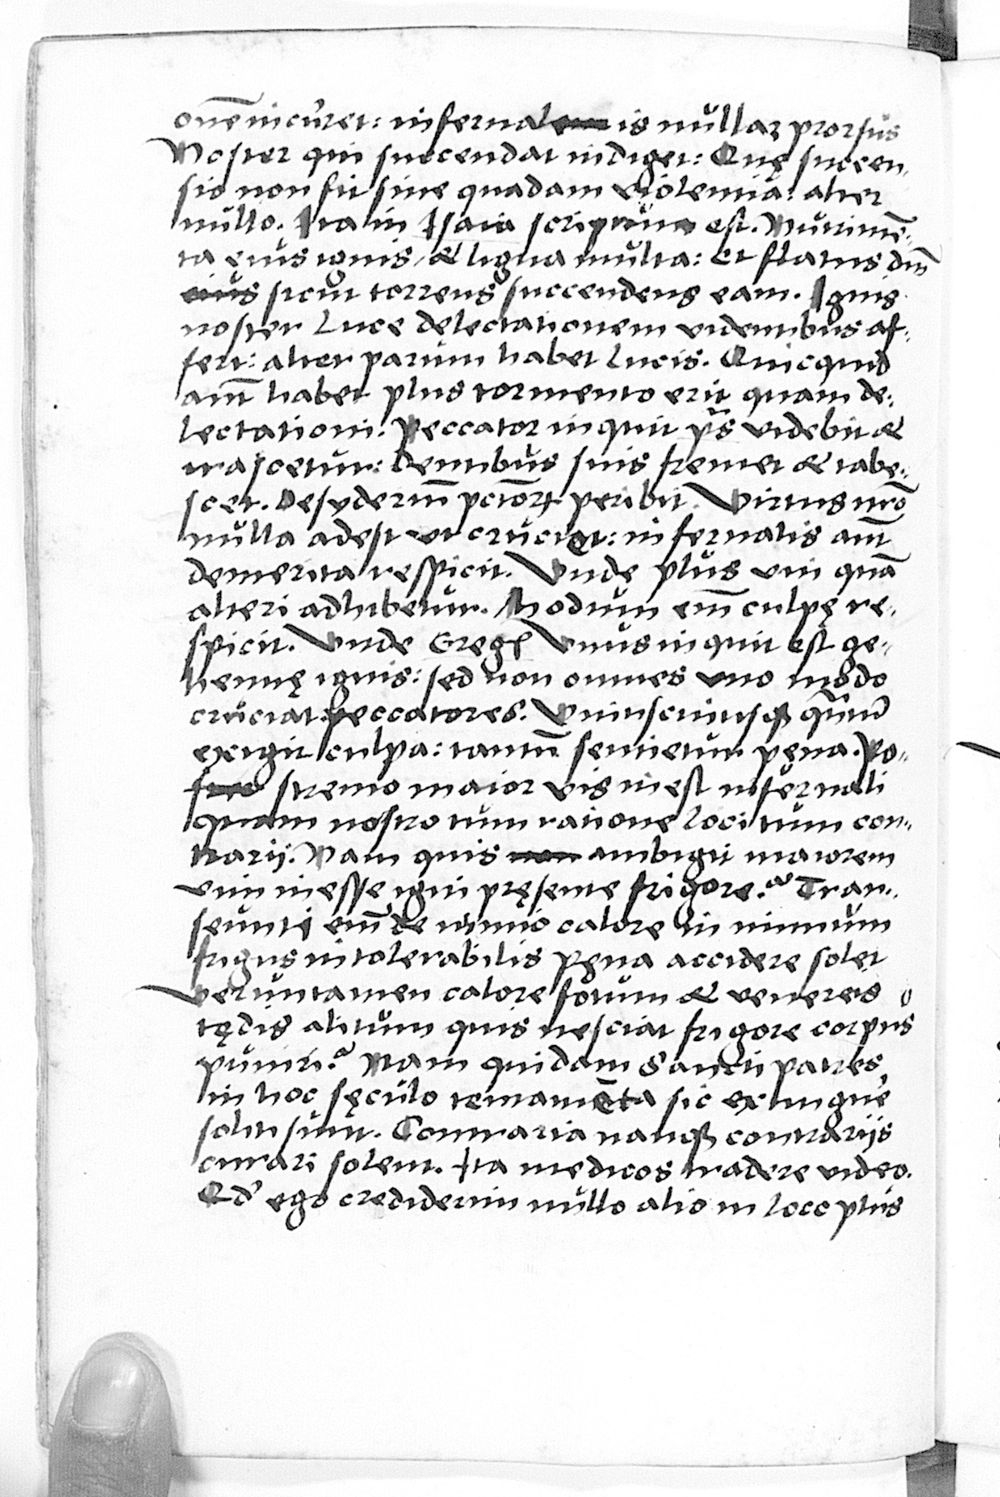 onē incuret: infernalem is nullaꝝ prorsus
Noster qui succendat indiget: Quę succen-
sio non fit sine quadam violentia: alter
nullo. Ita in Isaia scriptum est. Nutrimē-
ta eius ignis, & ligna multa: et flatus dnī
eius sicut torrens succendens eam. Ignis
noster luce delectationem videntibus af-
fert: alter parum habet lucis. Quicquid
aut̄ habet plus tormento erit quam de-
lectationi: Peccator inquit ps̄ videbit &
irascetur: dentibus suis fremet & tabe-
scet. Desyderiū pctōrꝝ peribit. Virtus nrō
nulla adest ut cruciet: infernalis aut̄
demerita respicit. Vnde plus uni quā
alteri adhibetur. Modum em̄ culpę re-
spicit. Vnde Greg Vnus inquit est ge-
hennę ignis: sed non omnes uno modo
cruciat peccatores. Vniuscuiusqꝫ quātū
exigit culpa: tantū sentietur pęna. Po-
stremo maior vis inest infernali
quam nostro tum ratione loci tum con-
trarij. Nam quis non ambigit maiorem
vim inesse igni pręsente frigore? Tran-
seunti em̄ de nimio calore in nimium
frigus intolerabilis pęna accidere solet
veruntamen calore fotum & veneris
tędis alitum quis nesciat frigore corpus
puniri? Nam quidam Sancti patres
in hoc sęculo tentamēta sic extinguē
soliti sunt. Contraria nanqꝫ contrarijs
curari solent. Ita medicos tradere video.
Qd' ego crediderim nullo alio in loco plus